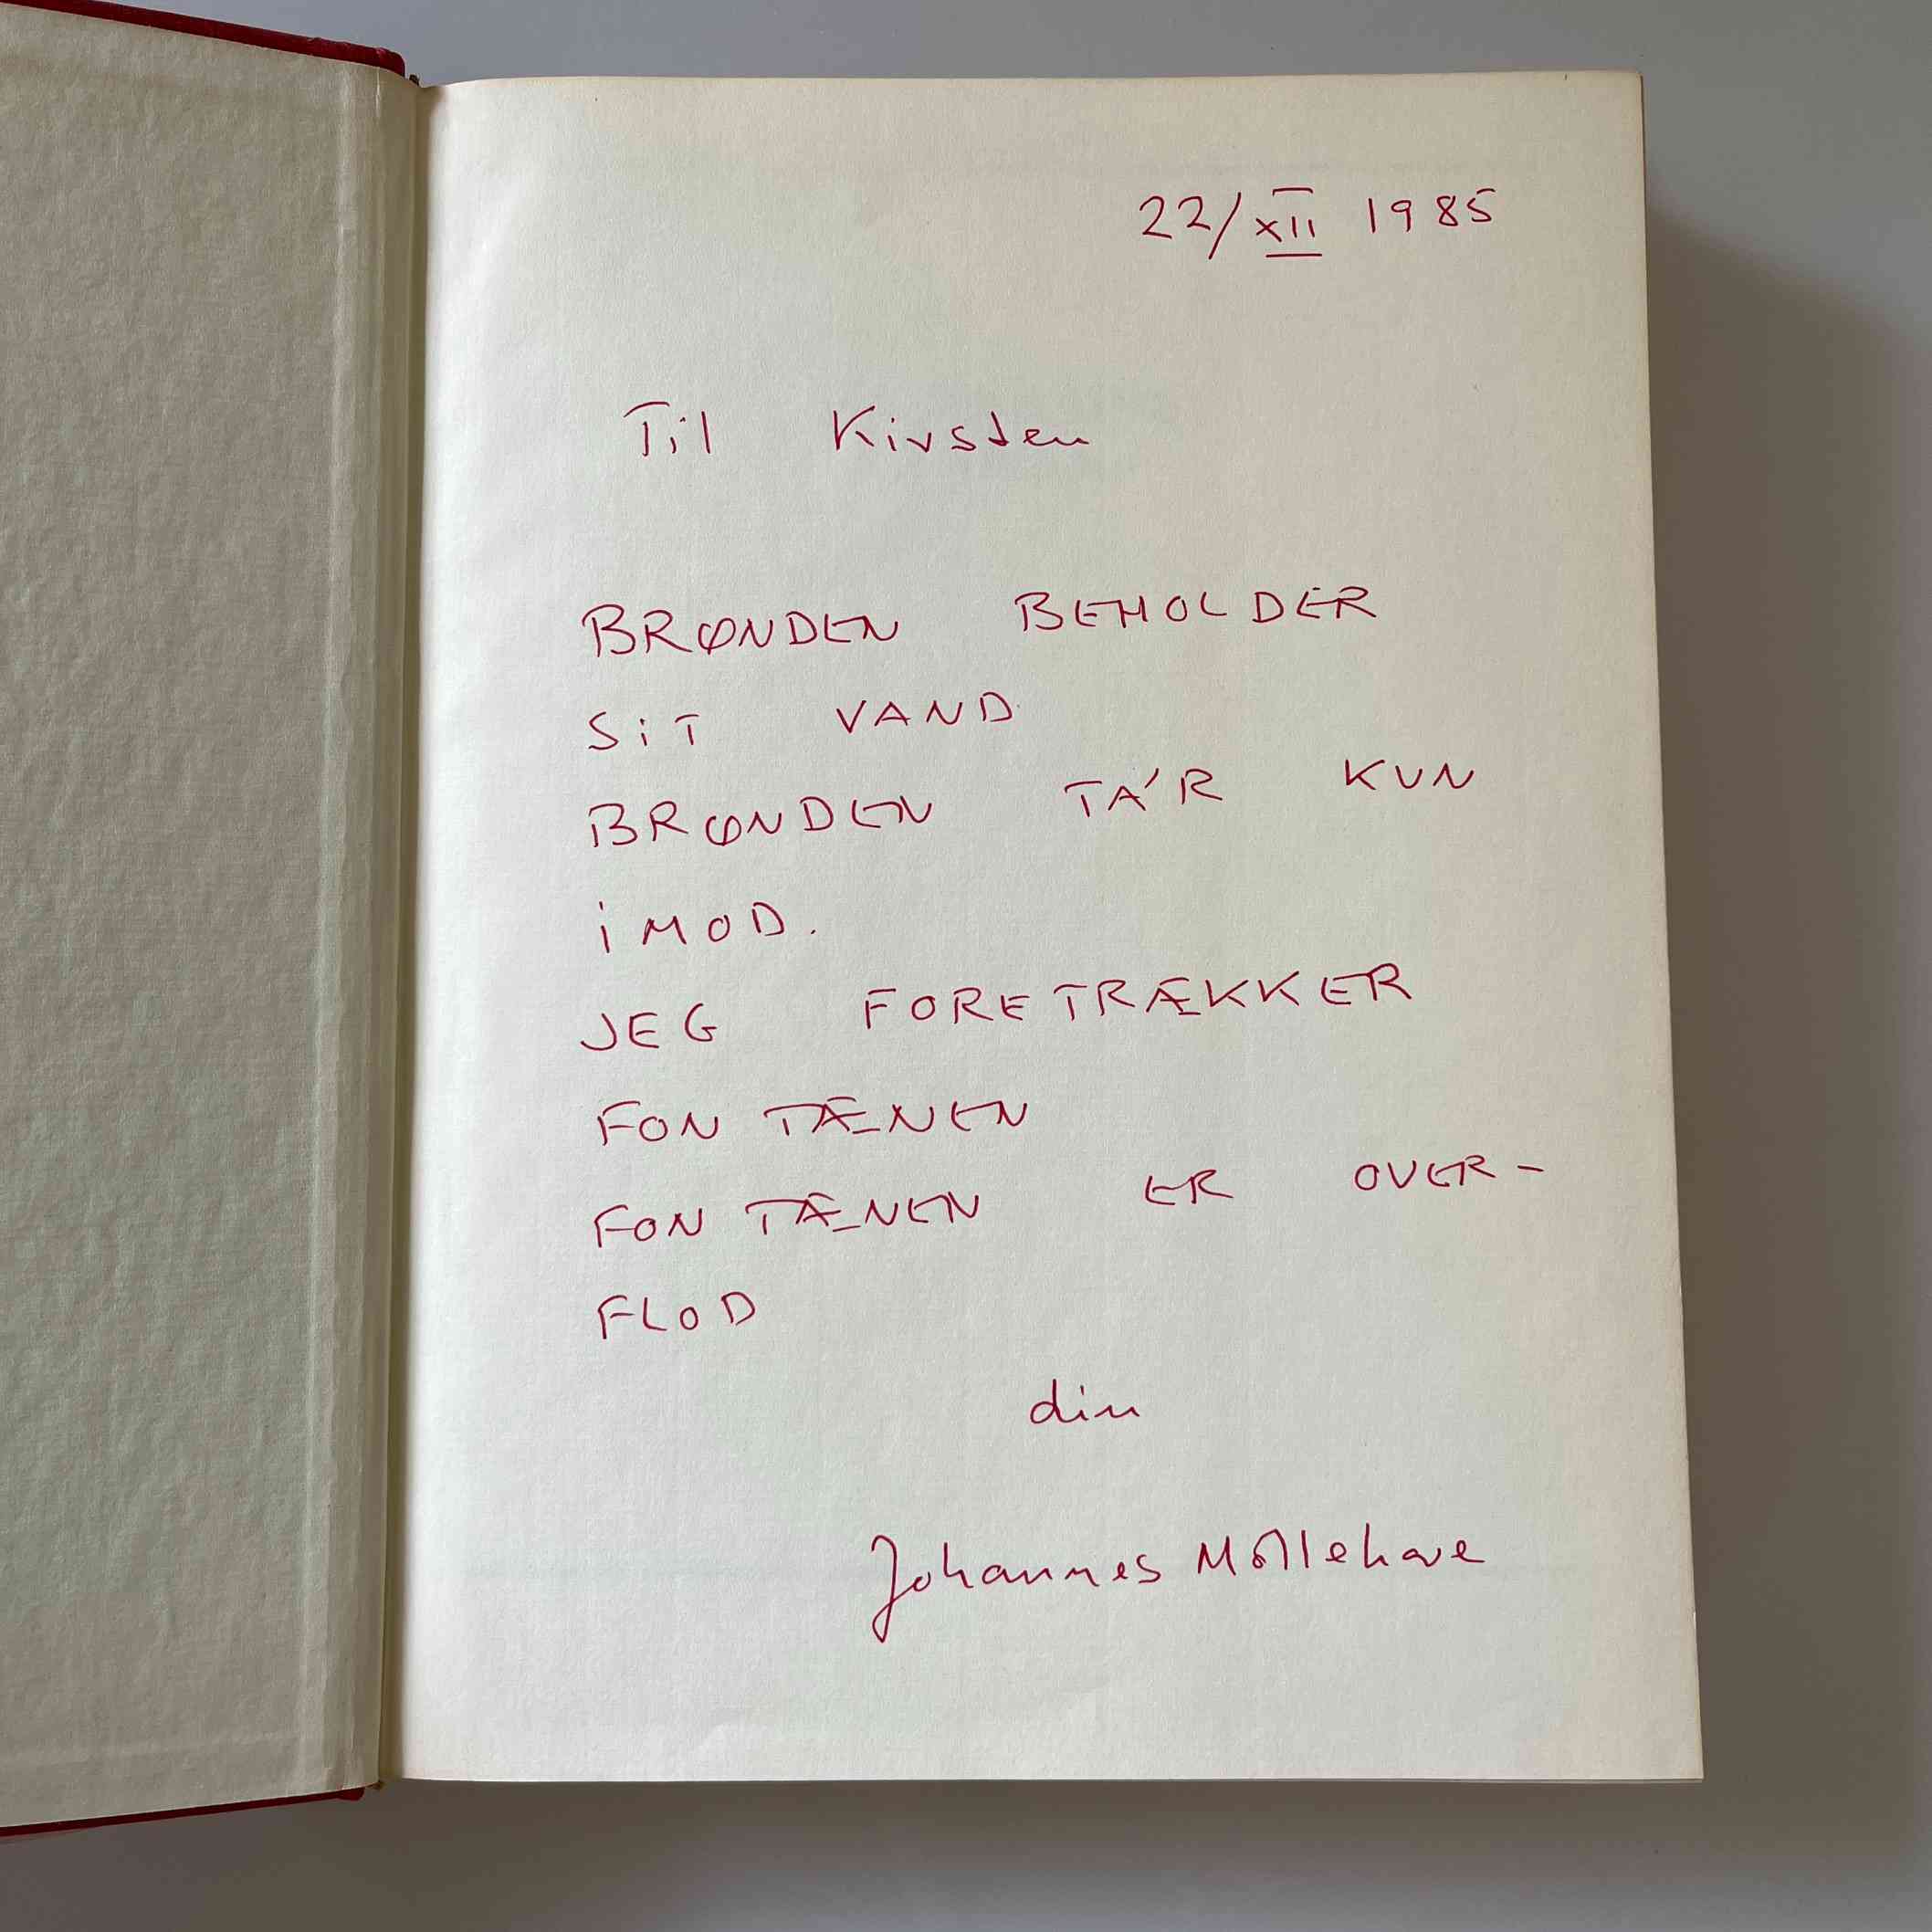 22/XII 1985
Til Kirsten
BRØNDEN BEHOLDER
SiT VAND
BRØNDEN TA'R KUN
iMOD.
JEG FORETRÆKKER
FONTÆNEN
FONTÆNEN ER OVER-
FLOD
din
Johannes Møllehave